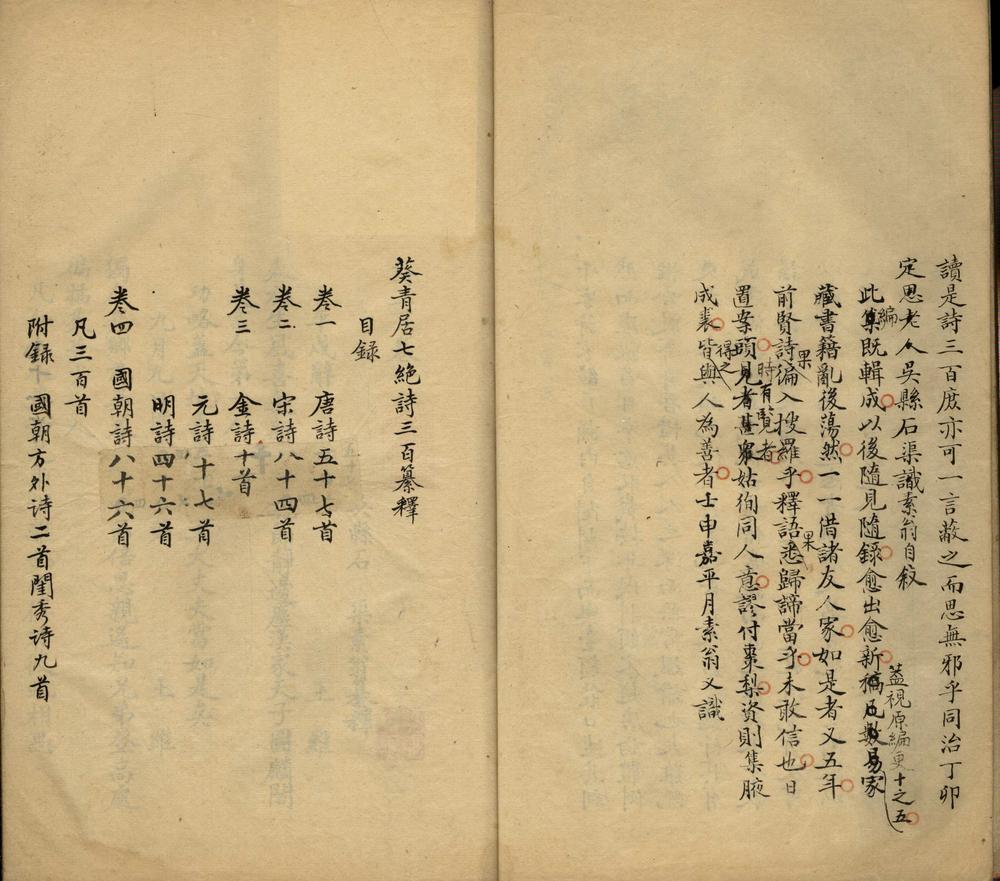 讀是詩三百庶亦可一言蔽之而思無邪乎同治丁卯
定思老人吳縣石渠識素翁自敘
此集編既輯成以後隨見隨錄愈出愈新稿凡數易家
蓋視原編更十之五
藏書籍亂後蕩然一一借諸友人家如是者又五年
前賢詩果徧入搜羅乎釋語果悉歸諦當乎未敢信也日
置案頭時有賢者見者甚衆姑徇同人意謬付棗梨資則集腋
成裘得之皆與人為善者士申嘉平月素翁又識
葵青居七絶詩三百纂釋
目録
卷一 唐詩五十七首
卷二 宋詩八十四首
卷三 金詩十首
元詩十七首
明詩四十六首
卷四 國朝詩八十六首
凡三百首
附録 國朝方外诗二首閨秀诗九首